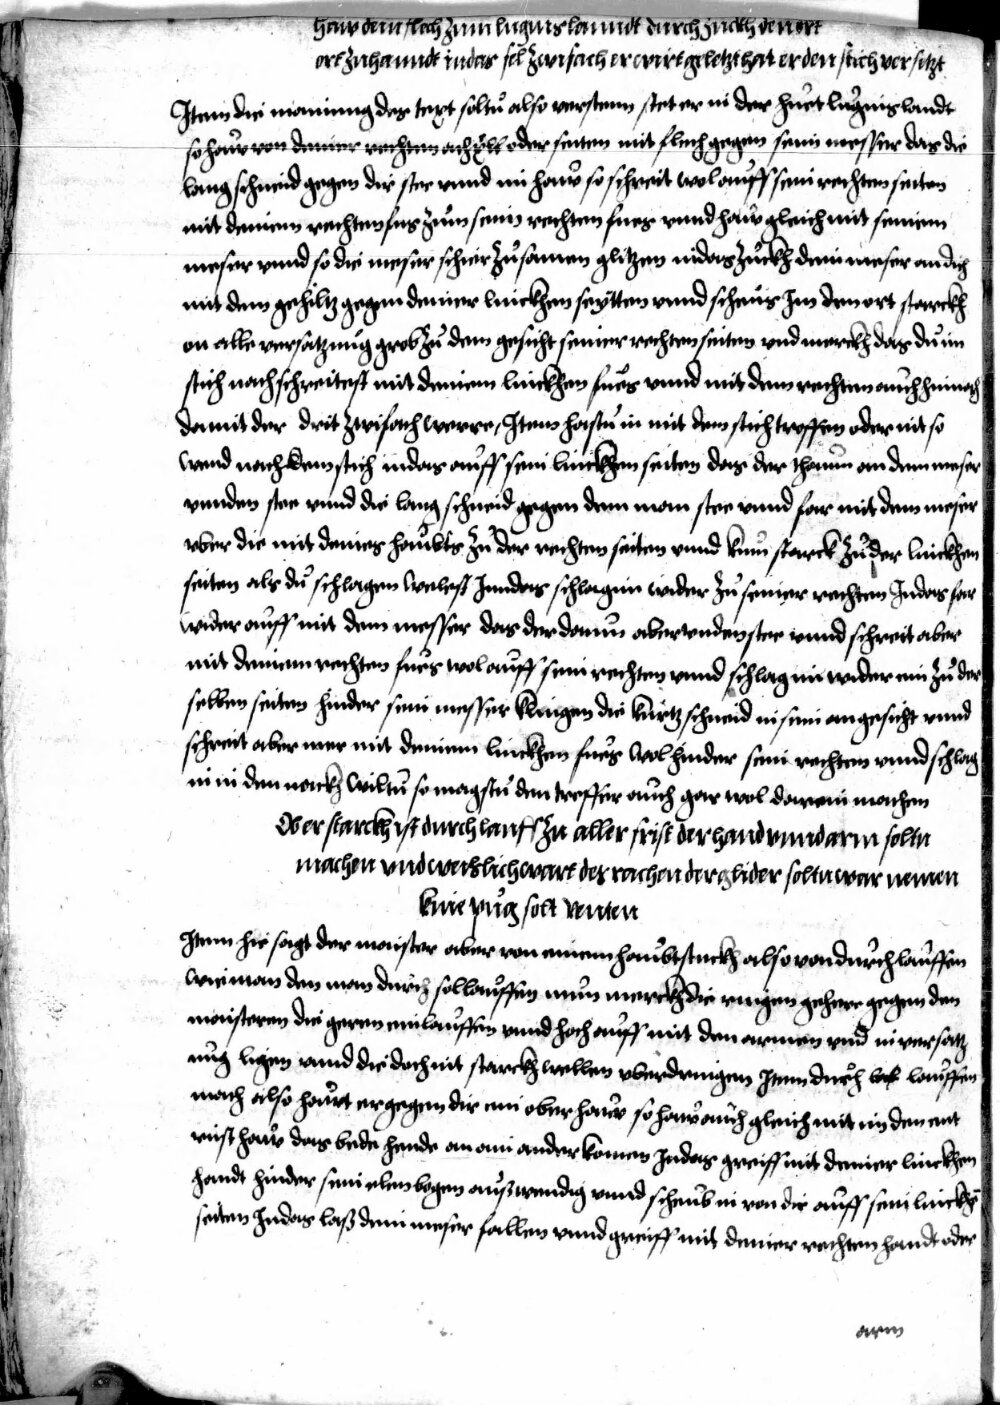 haw dem flech zum luginslanndt durch zuckh den ort
ort zu hanndt indas fel zwifach er wirt geletzt hat er den stich versetzt
Item die mainung des text soltu also versteen stet er in der huet luginslandt
so haw von deiner rechten achsll oder seiten mit flech gegen seim messer das die
lang schneid gegen dir stee vnnd im haw so schreit wol auff sein rechten seiten
mit deinem rechten fus zum seim rechten fues vnnd haw gleich mit seinem
meser vnnd so die meser schier zusamen glitzen indas zuckh dein meser an dich
mit dem gehiltz gegen deiner linckhen seytten vnnd scheus im den ort starckh
on alle versatzung grob zu dem gesicht seiner rechten seiten vnd merckh das du im
stich nach schreitest mit deinem linckhen fues vnnd mit dem rechten auch hinnach
damit der drit zwifach werre, Item hastu in mit dem stich troffen oder nit so
wend nach dem stich indas auff sein linckhen seiten das der thaum an dem meser
vnnden stee vnnd die lang schneid gegen dem man stee vnnd far mit dem meser
vber die mit deines haubts zu der rechten seiten vnnd kum starck zu der linckhen
seiten als du schlagen welest Inndas schlag in wider zu seiner rechten Indas far
wider auff mit dem messer das der daum aber vnden stee vnnd schreit aber
mit deinem rechten fues wol auff sein rechten vnnd schlag im wider ein zu der
selben seiten hinder sein messer klingen die kurtz schneid in sein angesicht vnnd
schreit aber mer mit deinem linckhen fues wol hinder sein rechtem vnnd schlag
in in den nackh wiltu so magstu den treffer auch gar wol darein machen
Ober starckh ist durchlauff zu aller frist der hand vnnd arm soltu
machen vnd werblich wart des rachen der glider soltu war nemen
knie pug solt renten
Item hie sagt der maister aber von einem haubstuckh also von durchlauffen
wie man den man durch sol lauffen nun merckh die ringen gehere gegen den
maisteren die geren einlauffen vnnd hoch auff mit den armen vnd in versatz
nug ligen vnnd die doch mit starckh wellen vberdringen Item durch lauffen
mach also haut er gegen dir ein ober haw so haw auch gleich mit im den ent
rusthaw das bede hende an ain ander komen Indas greiff mit deiner linckhen
handt hinder sein elenbogen auswendig vnnd scheub in von dir auff sein linckhe
seiten Indas las dein meser fallen vnnd greiff mit deiner rechten handt oder
arm